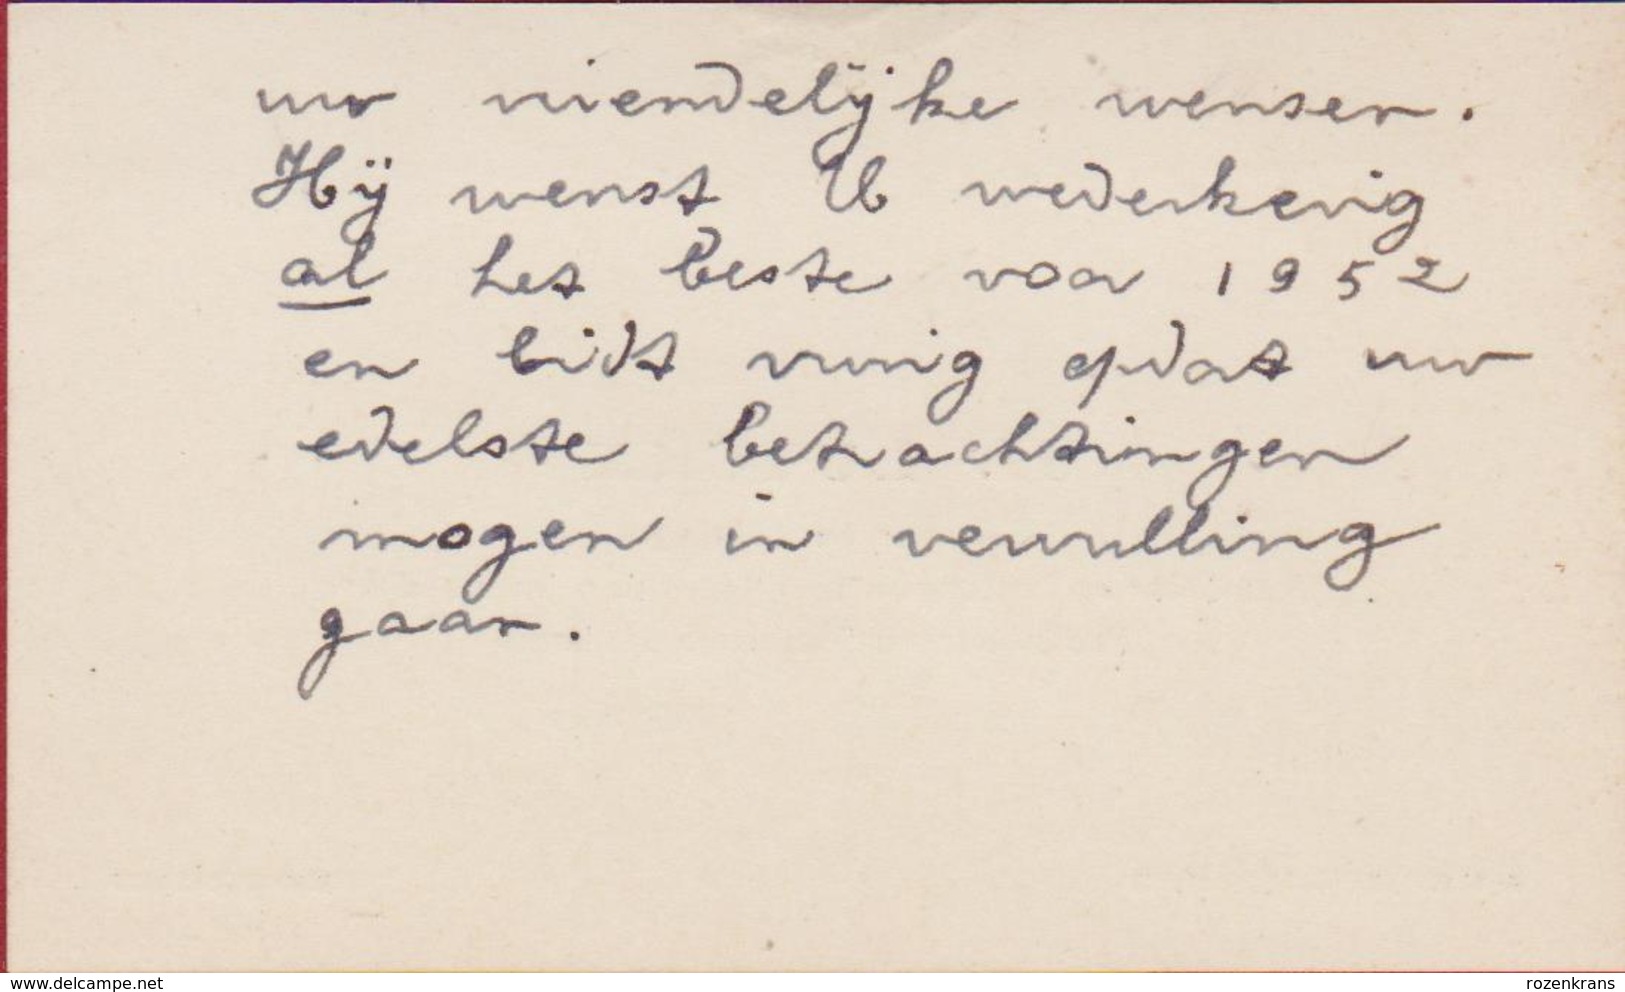 uw vriendelijke wensen.
Hij wenst U wederkerig
al het beste voor 1952
en bidt vurig opdat uw
edelste betrachtingen
mogen in vervulling
gaan.
www.delcampe.net
rozenkrans